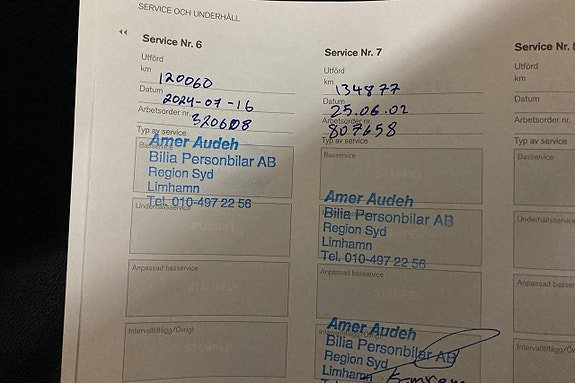 SERVICE OCH UNDERHÅLL
Service Nr. 6
Utförd
km
120060
Datum
2024-07-16
Arbetsorder nr.
320608
Typ av service
Basservice
Amer Audeh
Bilia Personbilar AB
Region Syd
Limhamn
Tel. 010-497 22 56
Underhållsservice
STÄMPEL
Anpassad basservice
STÄMPEL
Intervalltillägg/Övrigt
STÄMPEL
Service Nr. 7
Utförd
km
134877
Datum
25.06.02
Arbetsorder nr.
807658
Typ av service
Basservice
STÄMPEL
Amer Audeh
Bilia Personbilar AB
Region Syd
Limhamn
Tel. 010-497 22 56
Anpassad basservice
STÄMPEL
Amer Audeh
Bilia Personbilar AB
Region Syd
Limhamn
Service Nr. 8
Utförd
km
Datum
Arbetsorder nr.
Typ av service
Basservice
Underhållsservice
Anpassad basservice
Intervalltillägg/Övrigt